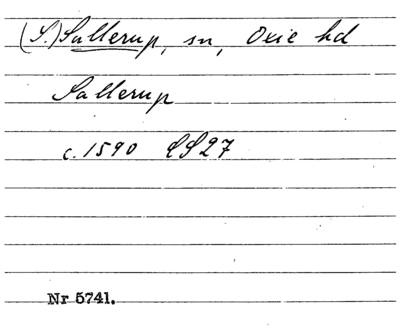 (S.) Sallerup, sn, Oxie hd
Sallerup
c. 1590 LS27
Nr 5741.